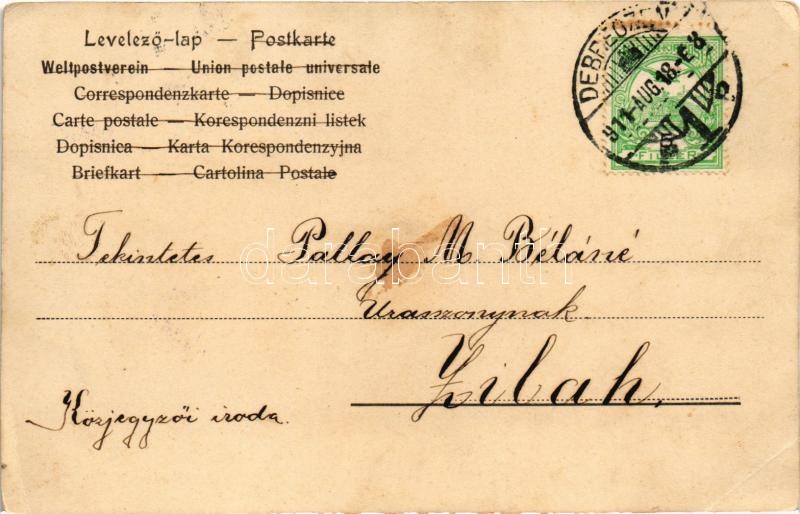 Levelező-lap — Postkarte
Weltpostverein — Union postale universale
Correspondenzkarte — Dopisnice
Carte postale — Korespondenzni listek
Dopisnica — Karta Korespondenzyjna
Briefkart — Cartolina Postale
DEBRECZEN
911-AUG.18.-E8
FILLÉR
Tekintetes Pallay M. Béláné
Uraszonynak
Zilah.
Közjegyzői iroda.
darabanth